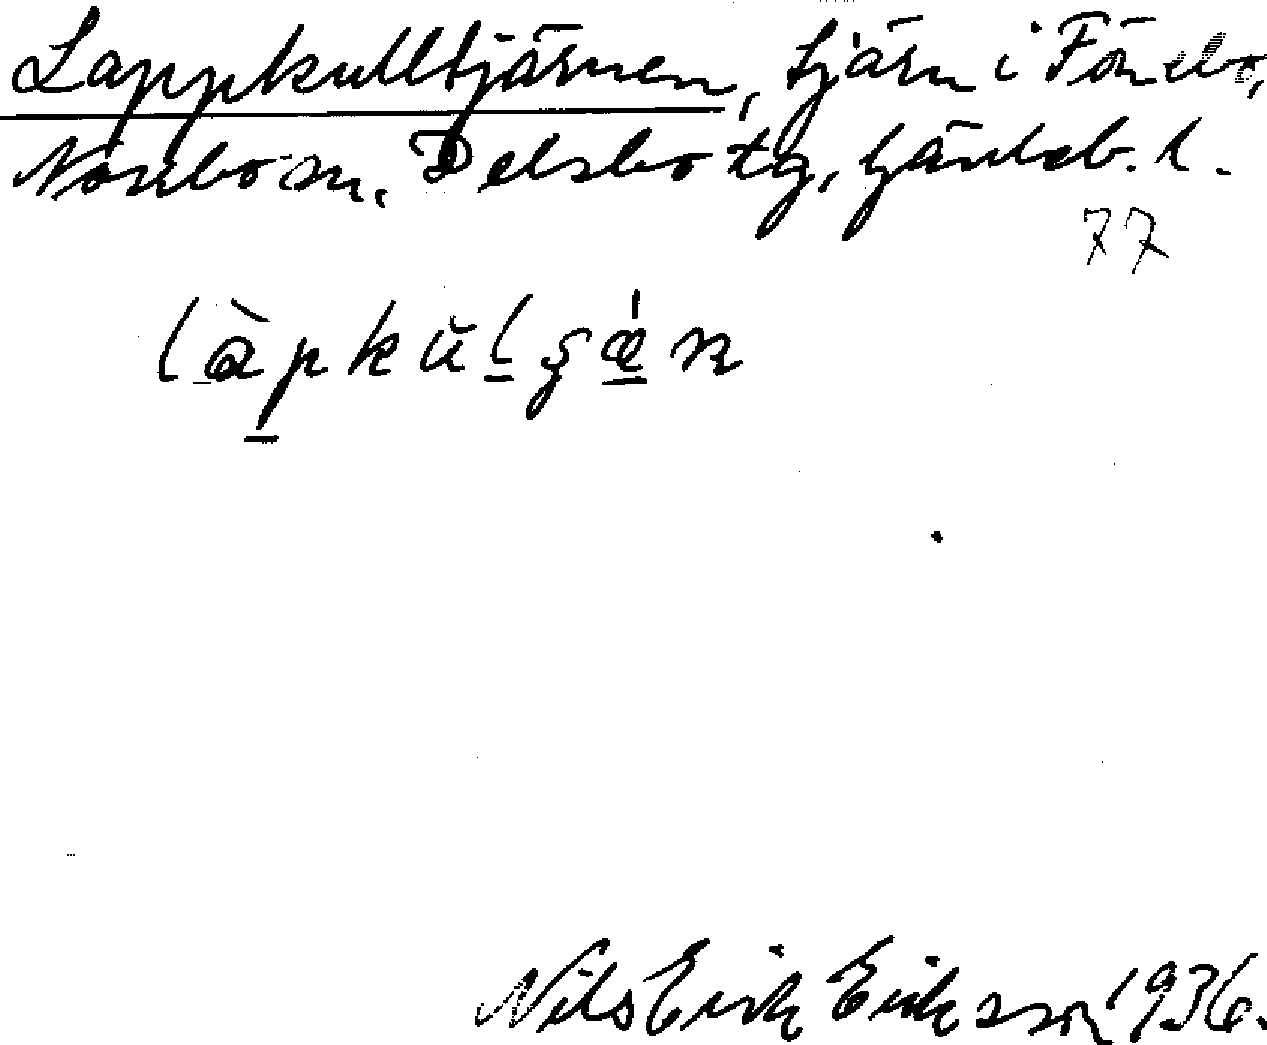 Lappkulltjärnen, tjärn i Förnebo,
Norrbo sn, Delsbo tg, Gävleb. l.
77
làpkŭlʂæ̍n
Nils Erik Eriksson 1936.